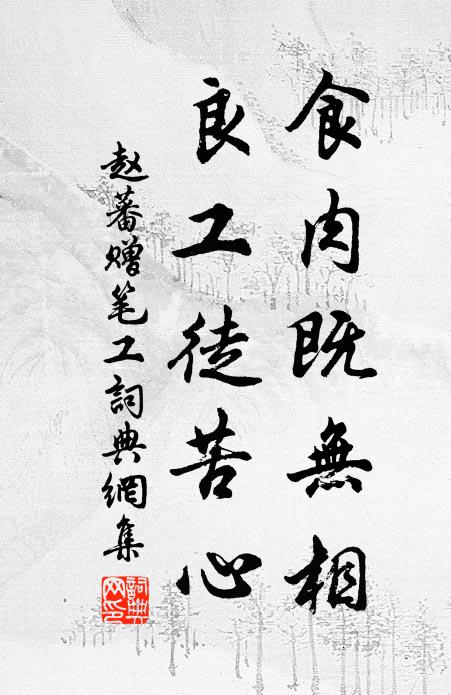 食肉既無相
良工徒苦心
赵蕃赠笔工詞典網集
詞典网印